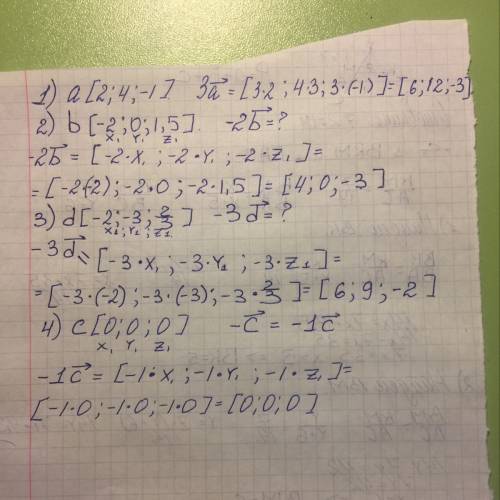 1) a [2; 4; -1] 3a⃗ = [3·2; 4·3; 3·(-1)] = [6; 12; -3]
2) b [-2; 0; 1,5] -2b⃗ = ?
x₁ Y₁ Z₁
-2b⃗ = [-2·X₁; -2·Y₁; -2·Z₁] =
= [-2(-2); -2·0; -2·1,5] = [4; 0; -3]
3) d [-2; -3; 2/3] -3d⃗ = ?
x₁; Y₁; Z₁
-3d⃗ = [-3·X₁; -3·Y₁; -3·Z₁] =
= [-3·(-2); -3·(-3); -3·2/3] = [6; 9; -2]
4) C [0; 0; 0] -c⃗ = -1c⃗
x₁ Y₁ Z₁
-1c⃗ = [-1·X₁; -1·Y₁; -1·Z₁] =
[-1·0; -1·0; -1·0] = [0; 0; 0]